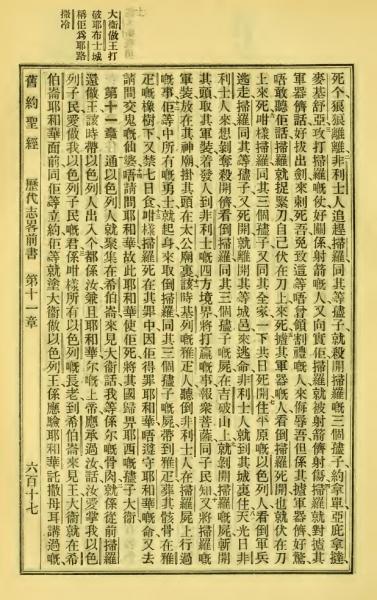 大衛做王打
破耶布士城
稱佢爲耶路
撒冷
死个狠狠離離非利士人追趕掃羅同其等孻子就殺開掃羅嘅三個孻子約拿單亞庇拿撻
麥基舒亞攻打掃羅嘅伎好關係射箭嘅人又向實佢掃羅就被射箭儕射傷掃羅就對揸其
軍器儕話好拔出劍來刺死吾免致這等唔曾領割禮嘅人來侮辱吾但係其揸軍器儕好驚
唔敢聽佢話掃羅就捉緊刀自己伏在刀上來死揸其軍器嘅人看倒掃羅死開也就伏在刀
上來死咁樣掃羅同其三個孻子又同其全家一下共日死開住平原嘅以色列人看倒軍兵
逃走掃羅同其等孻子又死開就離開其等城邑來逃命非利士人就到其城裏住天光日非
利士人來想剝奪殺開儕看倒掃羅同其三個孻子嘅屍在吉破山上就剝開掃羅嘅屍斬開
其頭取其軍裝差發人到非利士嘅四方境界將打贏嘅事報衆菩薩同子民知又將掃羅嘅
軍裝放在其神廟掛其頭在太公廟裏該時基列嘅雅疋人聽倒非利士人在掃羅屍上行過
嘅事佢等中所有嘅勇士就起身來取倒掃羅同其三個孻子嘅屍帶到雅疋葬其骸骨在雅
疋嘅橡樹下又禁七日食咁樣掃羅死在其罪中因佢得罪耶和華唔遵守耶和華嘅命又去
請問交鬼嘅仙婆唔請問耶和華故此耶和華使佢死將其國歸畀耶西嘅孻子大衛
第十一章 通以色列人就聚集在希伯崙來見大衛話我等係尔嘅骨肉就係從前掃羅
還做王該時帶以色列人出入个都係汝兼且耶和華尔嘅上帝應承過汝話汝愛掌我以色
列子民愛做我以色列子民嘅君係咁樣所有以色列嘅長老到希伯崙來見王大衛就在希
伯崙耶和華面前同佢等立約佢等就塗大衛做以色列王係應驗耶和華託撒母耳講過嘅
舊約聖經 歷代志畧前書 第十一章
六百十七